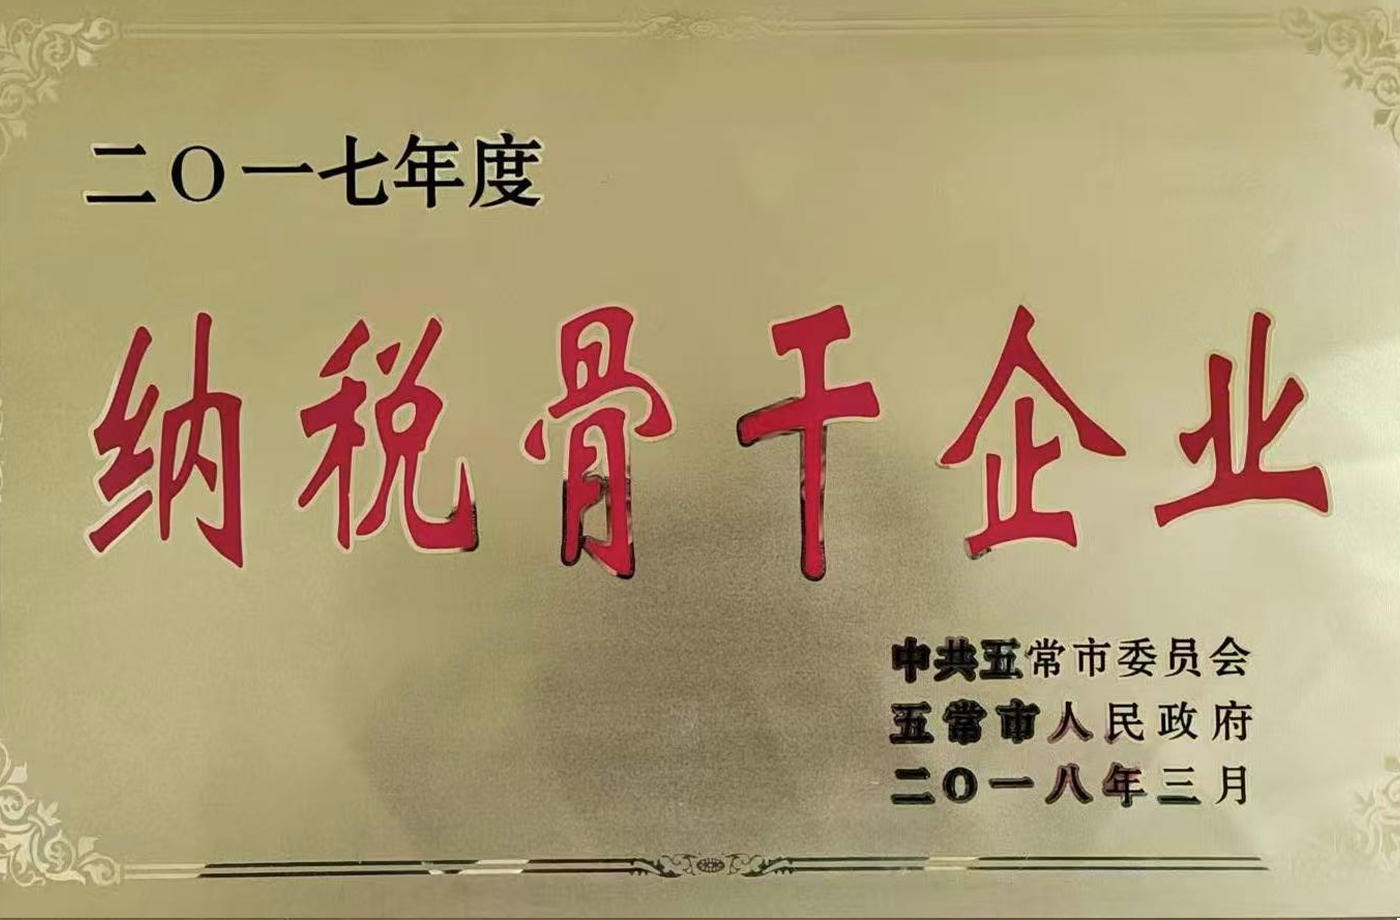 二〇一七年度
纳税骨干企业
中共五常市委员会
五常市人民政府
二〇一八年三月